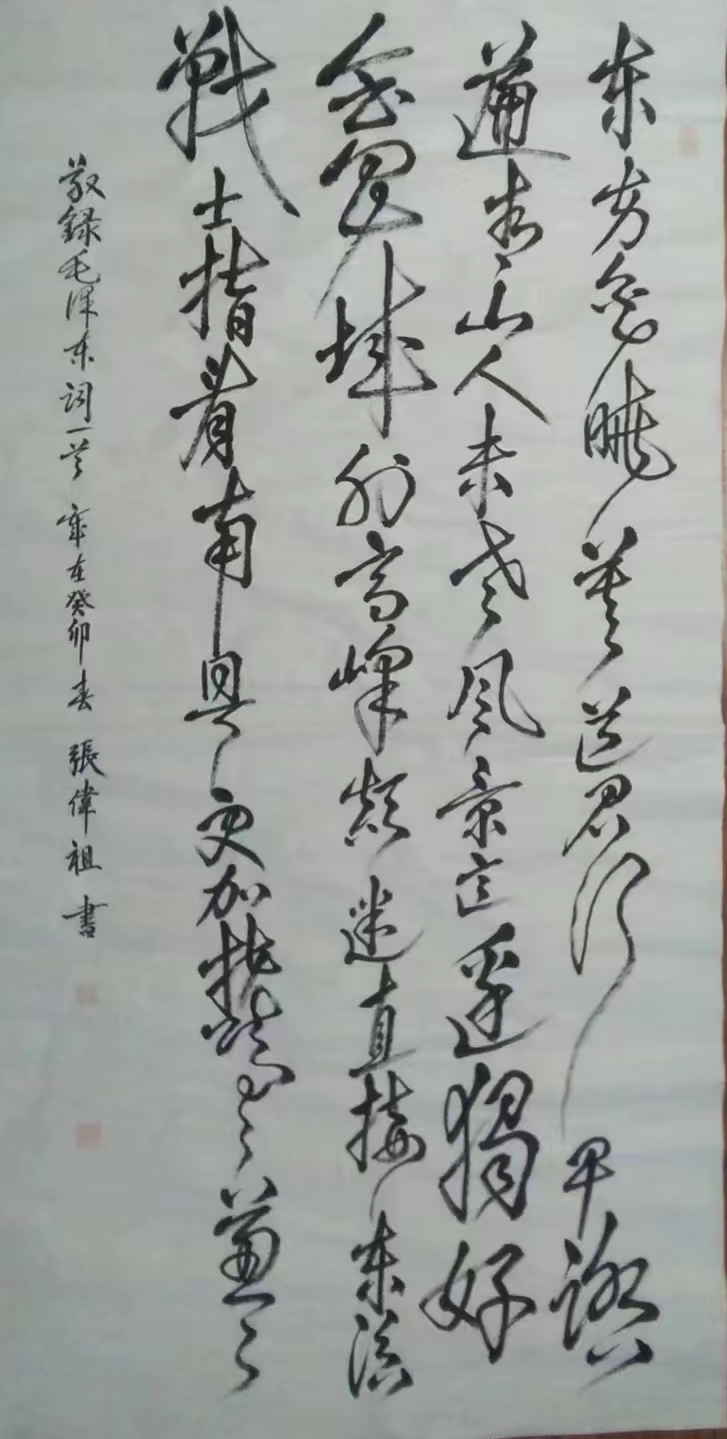 东方欲曉莫道君行早踏
遍青山人未老风景這边獨好
會昌城外高峰颠連直接东溟
戰士指看南粤更加郁々葱々
敬録毛泽东词一首 歲在癸卯春 張偉祖書